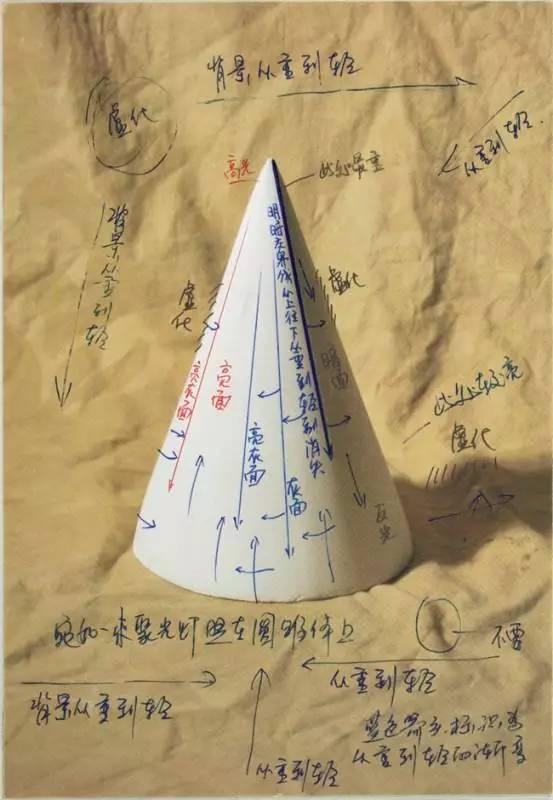 背景从重到轻
虚化
从重到轻
高光
此处最重
背景从重到轻
明暗交界线从上往下从重到轻到消失
虚化
虚化
亮灰面
亮面
暗面
此处较亮
虚化
亮灰面
灰面
反光
宛如一束聚光灯照在圆锥体上
不要
从重到轻
背景从重到轻
从重到轻
蓝色箭头标识为
从重到轻的渐变